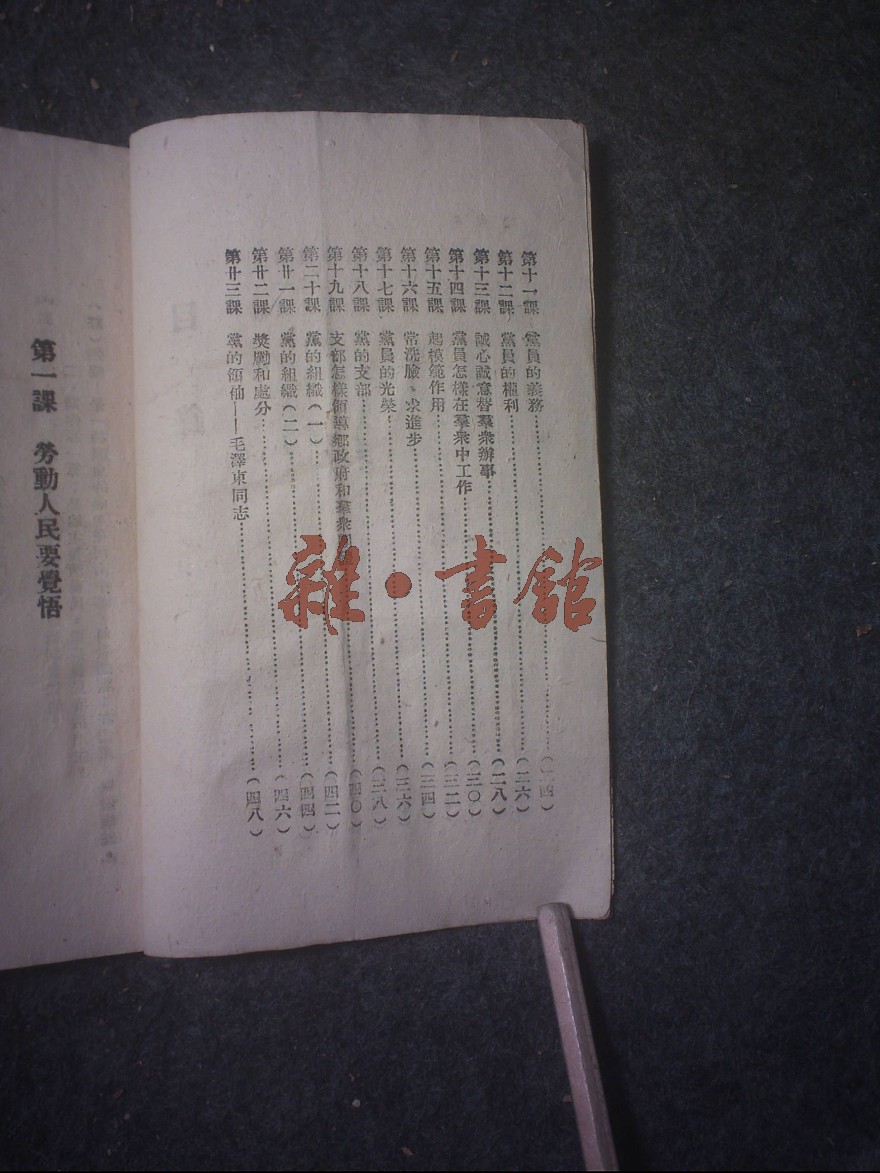 第十一課 黨員的義務……………………(二四)
第十二課 黨員的權利……………………(二六)
第十三課 誠心誠意替羣衆辦事……………………(二八)
第十四課 黨員怎樣在羣衆中工作……………………(三〇)
第十五課 起模範作用……………………(三二)
第十六課 常洗臉、求進步……………………(三四)
第十七課 黨員的光榮……………………(三六)
第十八課 黨的支部……………………(三八)
第十九課 支部怎樣領導鄉政府和羣衆……………………(四〇)
第二十課 黨的組織(一)……………………(四二)
第廿一課 黨的組織(二)……………………(四四)
第廿二課 獎勵和處分……………………(四六)
第廿三課 黨的領袖——毛澤東同志……………………(四八)
第一課 勞動人民要覺悟
雜·書館